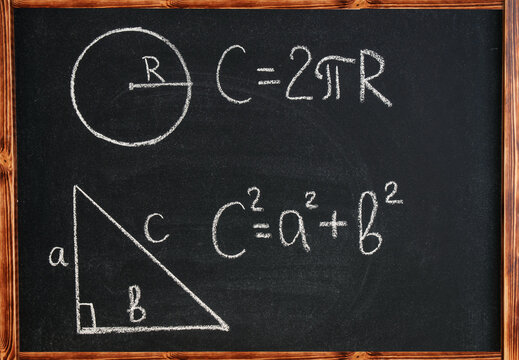 R C=2πR
c
a C²=a²+b²
b